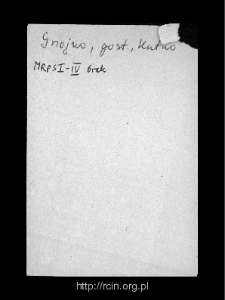 Gnojno, gost, Kutno
MRPS I-IV brak
http://rcin.org.pl